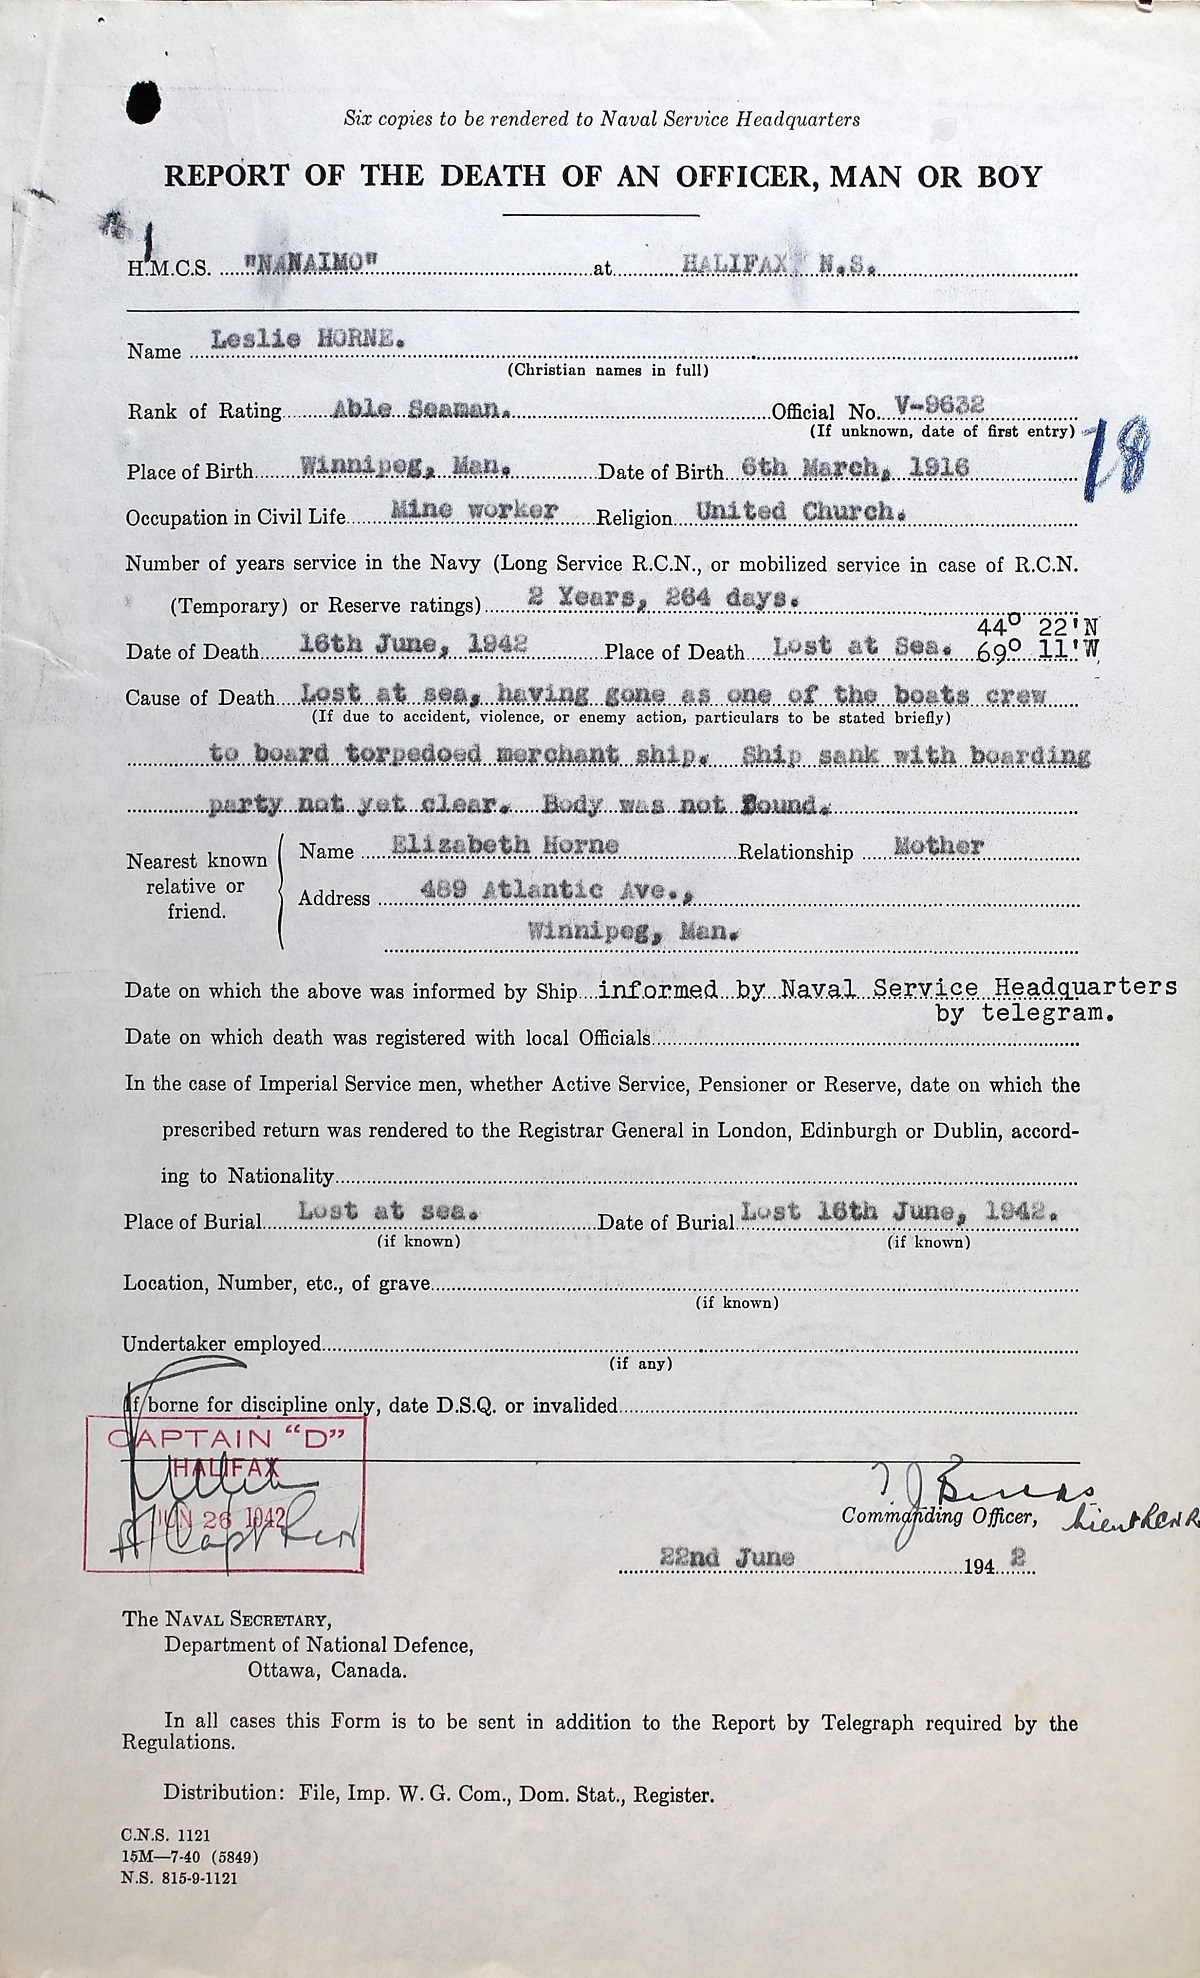 Six copies to be rendered to Naval Service Headquarters
REPORT OF THE DEATH OF AN OFFICER, MAN OR BOY
H.M.C.S. "NANAIMO" at HALIFAX N.S.
Name Leslie HORNE.
(Christian names in full)
Rank of Rating Able Seaman. Official No. V-9632
(If unknown, date of first entry)
18
Place of Birth Winnipeg, Man. Date of Birth 6th March, 1916
Occupation in Civil Life Mine worker Religion United Church.
Number of years service in the Navy (Long Service R.C.N., or mobilized service in case of R.C.N.
(Temporary) or Reserve ratings) 2 Years, 264 days.
44° 22'N
Date of Death 16th June, 1942 Place of Death Lost at Sea. 69° 11'W
Cause of Death Lost at sea, having gone as one of the boats crew
(If due to accident, violence, or enemy action, particulars to be stated briefly)
to board torpedoed merchant ship. Ship sank with boarding
party not yet clear. Body was not found.
Nearest known relative or friend.
Name Elizabeth Horne Relationship Mother
Address 489 Atlantic Ave.,
Winnipeg, Man.
Date on which the above was informed by Ship informed by Naval Service Headquarters
by telegram.
Date on which death was registered with local Officials
In the case of Imperial Service men, whether Active Service, Pensioner or Reserve, date on which the
prescribed return was rendered to the Registrar General in London, Edinburgh or Dublin, accord-
ing to Nationality
Place of Burial Lost at sea. Date of Burial Lost 16th June, 1942.
(if known) (if known)
Location, Number, etc., of grave
(if known)
Undertaker employed
(if any)
If borne for discipline only, date D.S.Q. or invalided
CAPTAIN "D"
HALIFAX
JUN 26 1942
Capt RCN
Commanding Officer, Lieut RCNR
22nd June 1942
The NAVAL SECRETARY,
Department of National Defence,
Ottawa, Canada.
In all cases this Form is to be sent in addition to the Report by Telegraph required by the
Regulations.
Distribution: File, Imp. W. G. Com., Dom. Stat., Register.
C.N.S. 1121
15M—7-40 (5849)
N.S. 815-9-1121